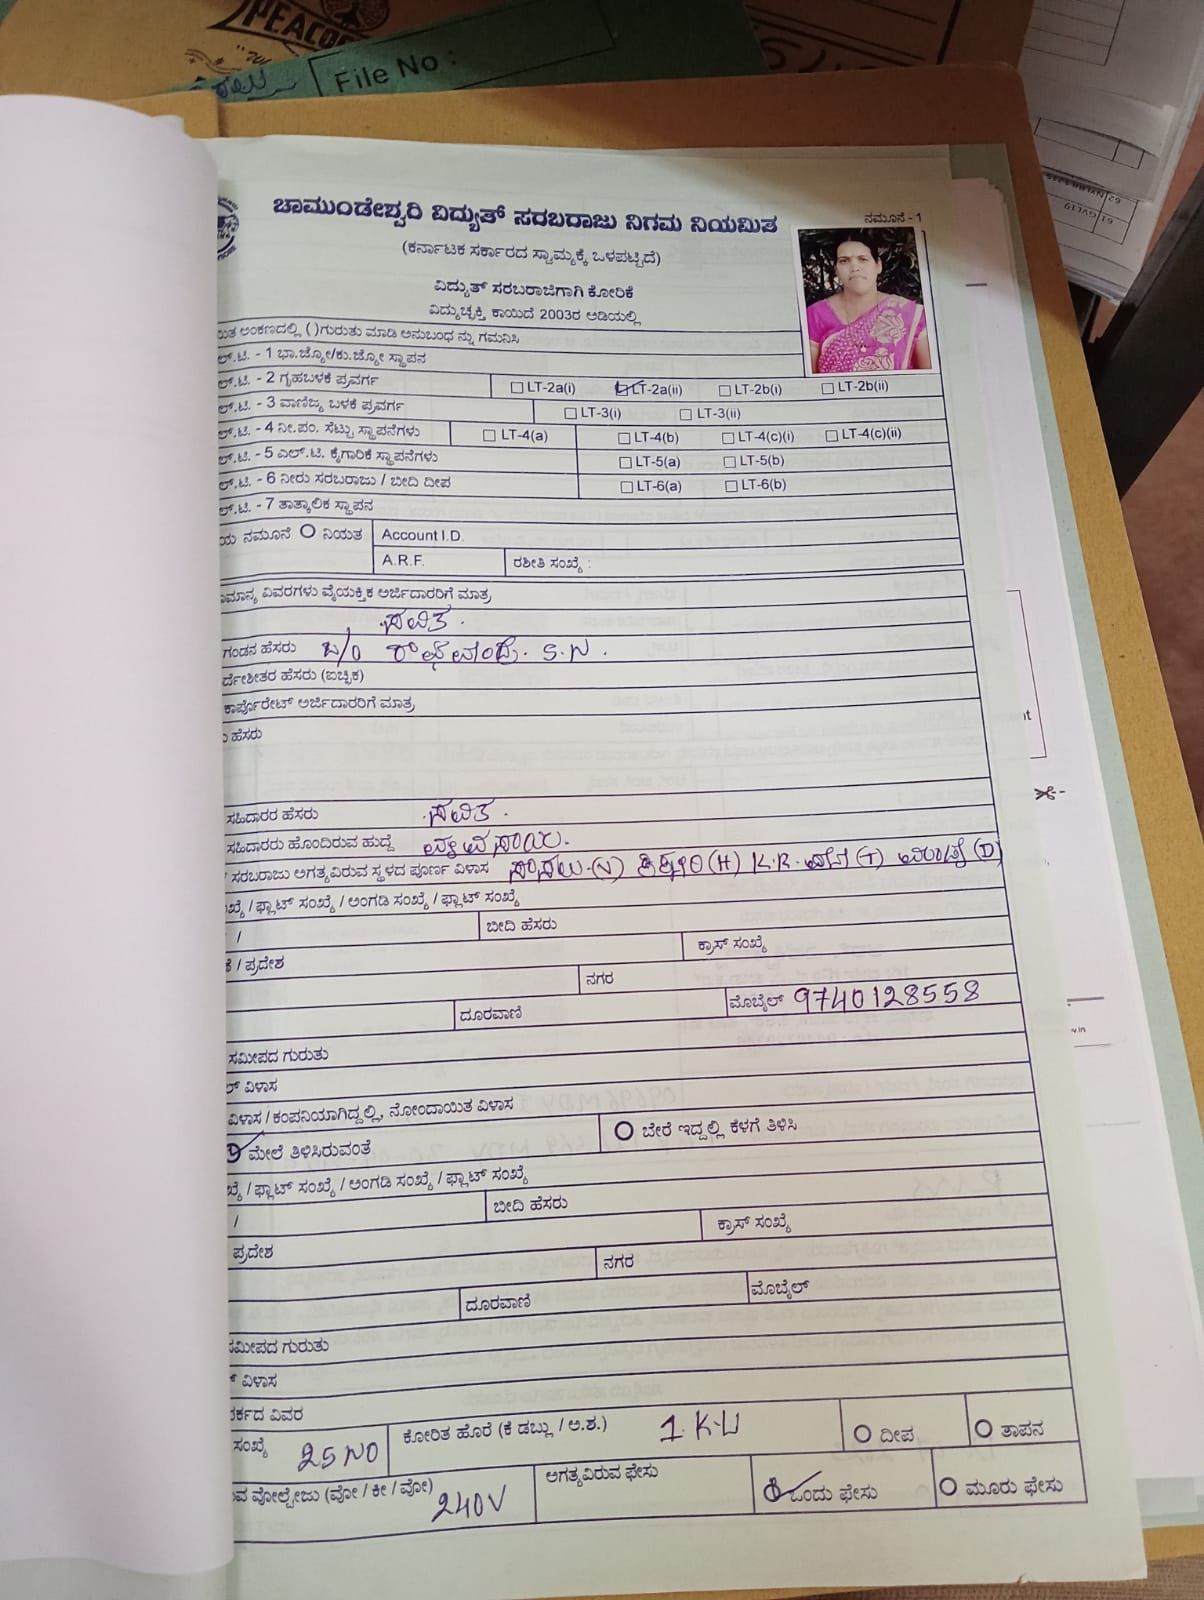 PEACO
File No :
ನಮೂನೆ - 1
ಚಾಮುಂಡೇಶ್ವರಿ ವಿದ್ಯುತ್ ಸರಬರಾಜು ನಿಗಮ ನಿಯಮಿತ
(ಕರ್ನಾಟಕ ಸರ್ಕಾರದ ಸ್ವಾಮ್ಯಕ್ಕೆ ಒಳಪಟ್ಟಿದೆ)
ವಿದ್ಯುತ್ ಸರಬರಾಜಿಗಾಗಿ ಕೋರಿಕೆ
ವಿದ್ಯುಚ್ಛಕ್ತಿ ಕಾಯಿದೆ 2003ರ ಅಡಿಯಲ್ಲಿ
ಅಂಕಣದಲ್ಲಿ ( )ಗುರುತು ಮಾಡಿ ಅನುಬಂಧ ನ್ನು ಗಮನಿಸಿ
ಲ್.ಟಿ. - 1 ಭಾ.ಜ್ಯೋ/ಕು.ಜ್ಯೋ ಸ್ಥಾಪನ
ಲ್.ಟಿ. - 2 ಗೃಹಬಳಕೆ ಪ್ರವರ್ಗ LT-2a(i) LT-2a(ii) LT-2b(i) LT-2b(ii)
ಲ್.ಟಿ. - 3 ವಾಣಿಜ್ಯ ಬಳಕೆ ಪ್ರವರ್ಗ LT-3(i) LT-3(ii)
ಲ್.ಟಿ. - 4 ನೀ.ಪಂ. ಸೆಟ್ಟು ಸ್ಥಾಪನೆಗಳು LT-4(a) LT-4(b) LT-4(c)(i) LT-4(c)(ii)
ಲ್.ಟಿ. - 5 ಎಲ್.ಟಿ. ಕೈಗಾರಿಕೆ ಸ್ಥಾಪನೆಗಳು LT-5(a) LT-5(b)
ಲ್.ಟಿ. - 6 ನೀರು ಸರಬರಾಜು / ಬೀದಿ ದೀಪ LT-6(a) LT-6(b)
ಲ್.ಟಿ. - 7 ತಾತ್ಕಾಲಿಕ ಸ್ಥಾಪನ
ಯ ನಮೂನೆ ನಿಯತ Account I.D.
A.R.F. ರಶೀತಿ ಸಂಖ್ಯೆ :
ಮಾನ್ಯ ವಿವರಗಳು ವೈಯಕ್ತಿಕ ಅರ್ಜಿದಾರರಿಗೆ ಮಾತ್ರ
ಸವಿತ.
ಗಂಡನ ಹೆಸರು S.N.
ಹೆಸರು (ಐಚ್ಛಿಕ)
ಕಾರ್ಪೊರೇಟ್ ಅರ್ಜಿದಾರರಿಗೆ ಮಾತ್ರ
ಹೆಸರು
ಸಹಿದಾರರ ಹೆಸರು ಸವಿತ.
ಸಹಿದಾರರು ಹೊಂದಿರುವ ಹುದ್ದೆ ವ್ಯವಸಾಯ.
ಸರಬರಾಜು ಅಗತ್ಯವಿರುವ ಸ್ಥಳದ ಪೂರ್ಣ ವಿಳಾಸ ಸಾಸಲು (V) ಕಿಕ್ಕೇರಿ (H) K.R. ಪೇಟೆ (T) ಮಂಡ್ಯ (D)
ಖ್ಯೆ / ಫ್ಲಾಟ್ ಸಂಖ್ಯೆ / ಅಂಗಡಿ ಸಂಖ್ಯೆ / ಫ್ಲಾಟ್ ಸಂಖ್ಯೆ
/ ಬೀದಿ ಹೆಸರು
ಕೆ / ಪ್ರದೇಶ ಕ್ರಾಸ್ ಸಂಖ್ಯೆ
ನಗರ
ದೂರವಾಣಿ ಮೊಬೈಲ್ 9740128558
ಸಮೀಪದ ಗುರುತು
ಲ್ ವಿಳಾಸ
ವಿಳಾಸ / ಕಂಪನಿಯಾಗಿದ್ದಲ್ಲಿ, ನೋಂದಾಯಿತ ವಿಳಾಸ
ಮೇಲೆ ತಿಳಿಸಿರುವಂತೆ ಬೇರೆ ಇದ್ದಲ್ಲಿ ಕೆಳಗೆ ತಿಳಿಸಿ
ಖ್ಯೆ / ಫ್ಲಾಟ್ ಸಂಖ್ಯೆ / ಅಂಗಡಿ ಸಂಖ್ಯೆ / ಫ್ಲಾಟ್ ಸಂಖ್ಯೆ
/ ಬೀದಿ ಹೆಸರು
ಪ್ರದೇಶ ಕ್ರಾಸ್ ಸಂಖ್ಯೆ
ನಗರ
ದೂರವಾಣಿ ಮೊಬೈಲ್
ಸಮೀಪದ ಗುರುತು
ವಿಳಾಸ
ರ್ಕದ ವಿವರ
ಸಂಖ್ಯೆ 25 NO ಕೋರಿತ ಹೊರೆ (ಕೆ ಡಬ್ಲು / ಅ.ಶ.) 1.K.U ದೀಪ ತಾಪನ
ವ ವೋಲ್ಟೇಜು (ವೋ / ಕೀ / ವೋ) 240V ಅಗತ್ಯವಿರುವ ಫೇಸು ಒಂದು ಫೇಸು ಮೂರು ಫೇಸು